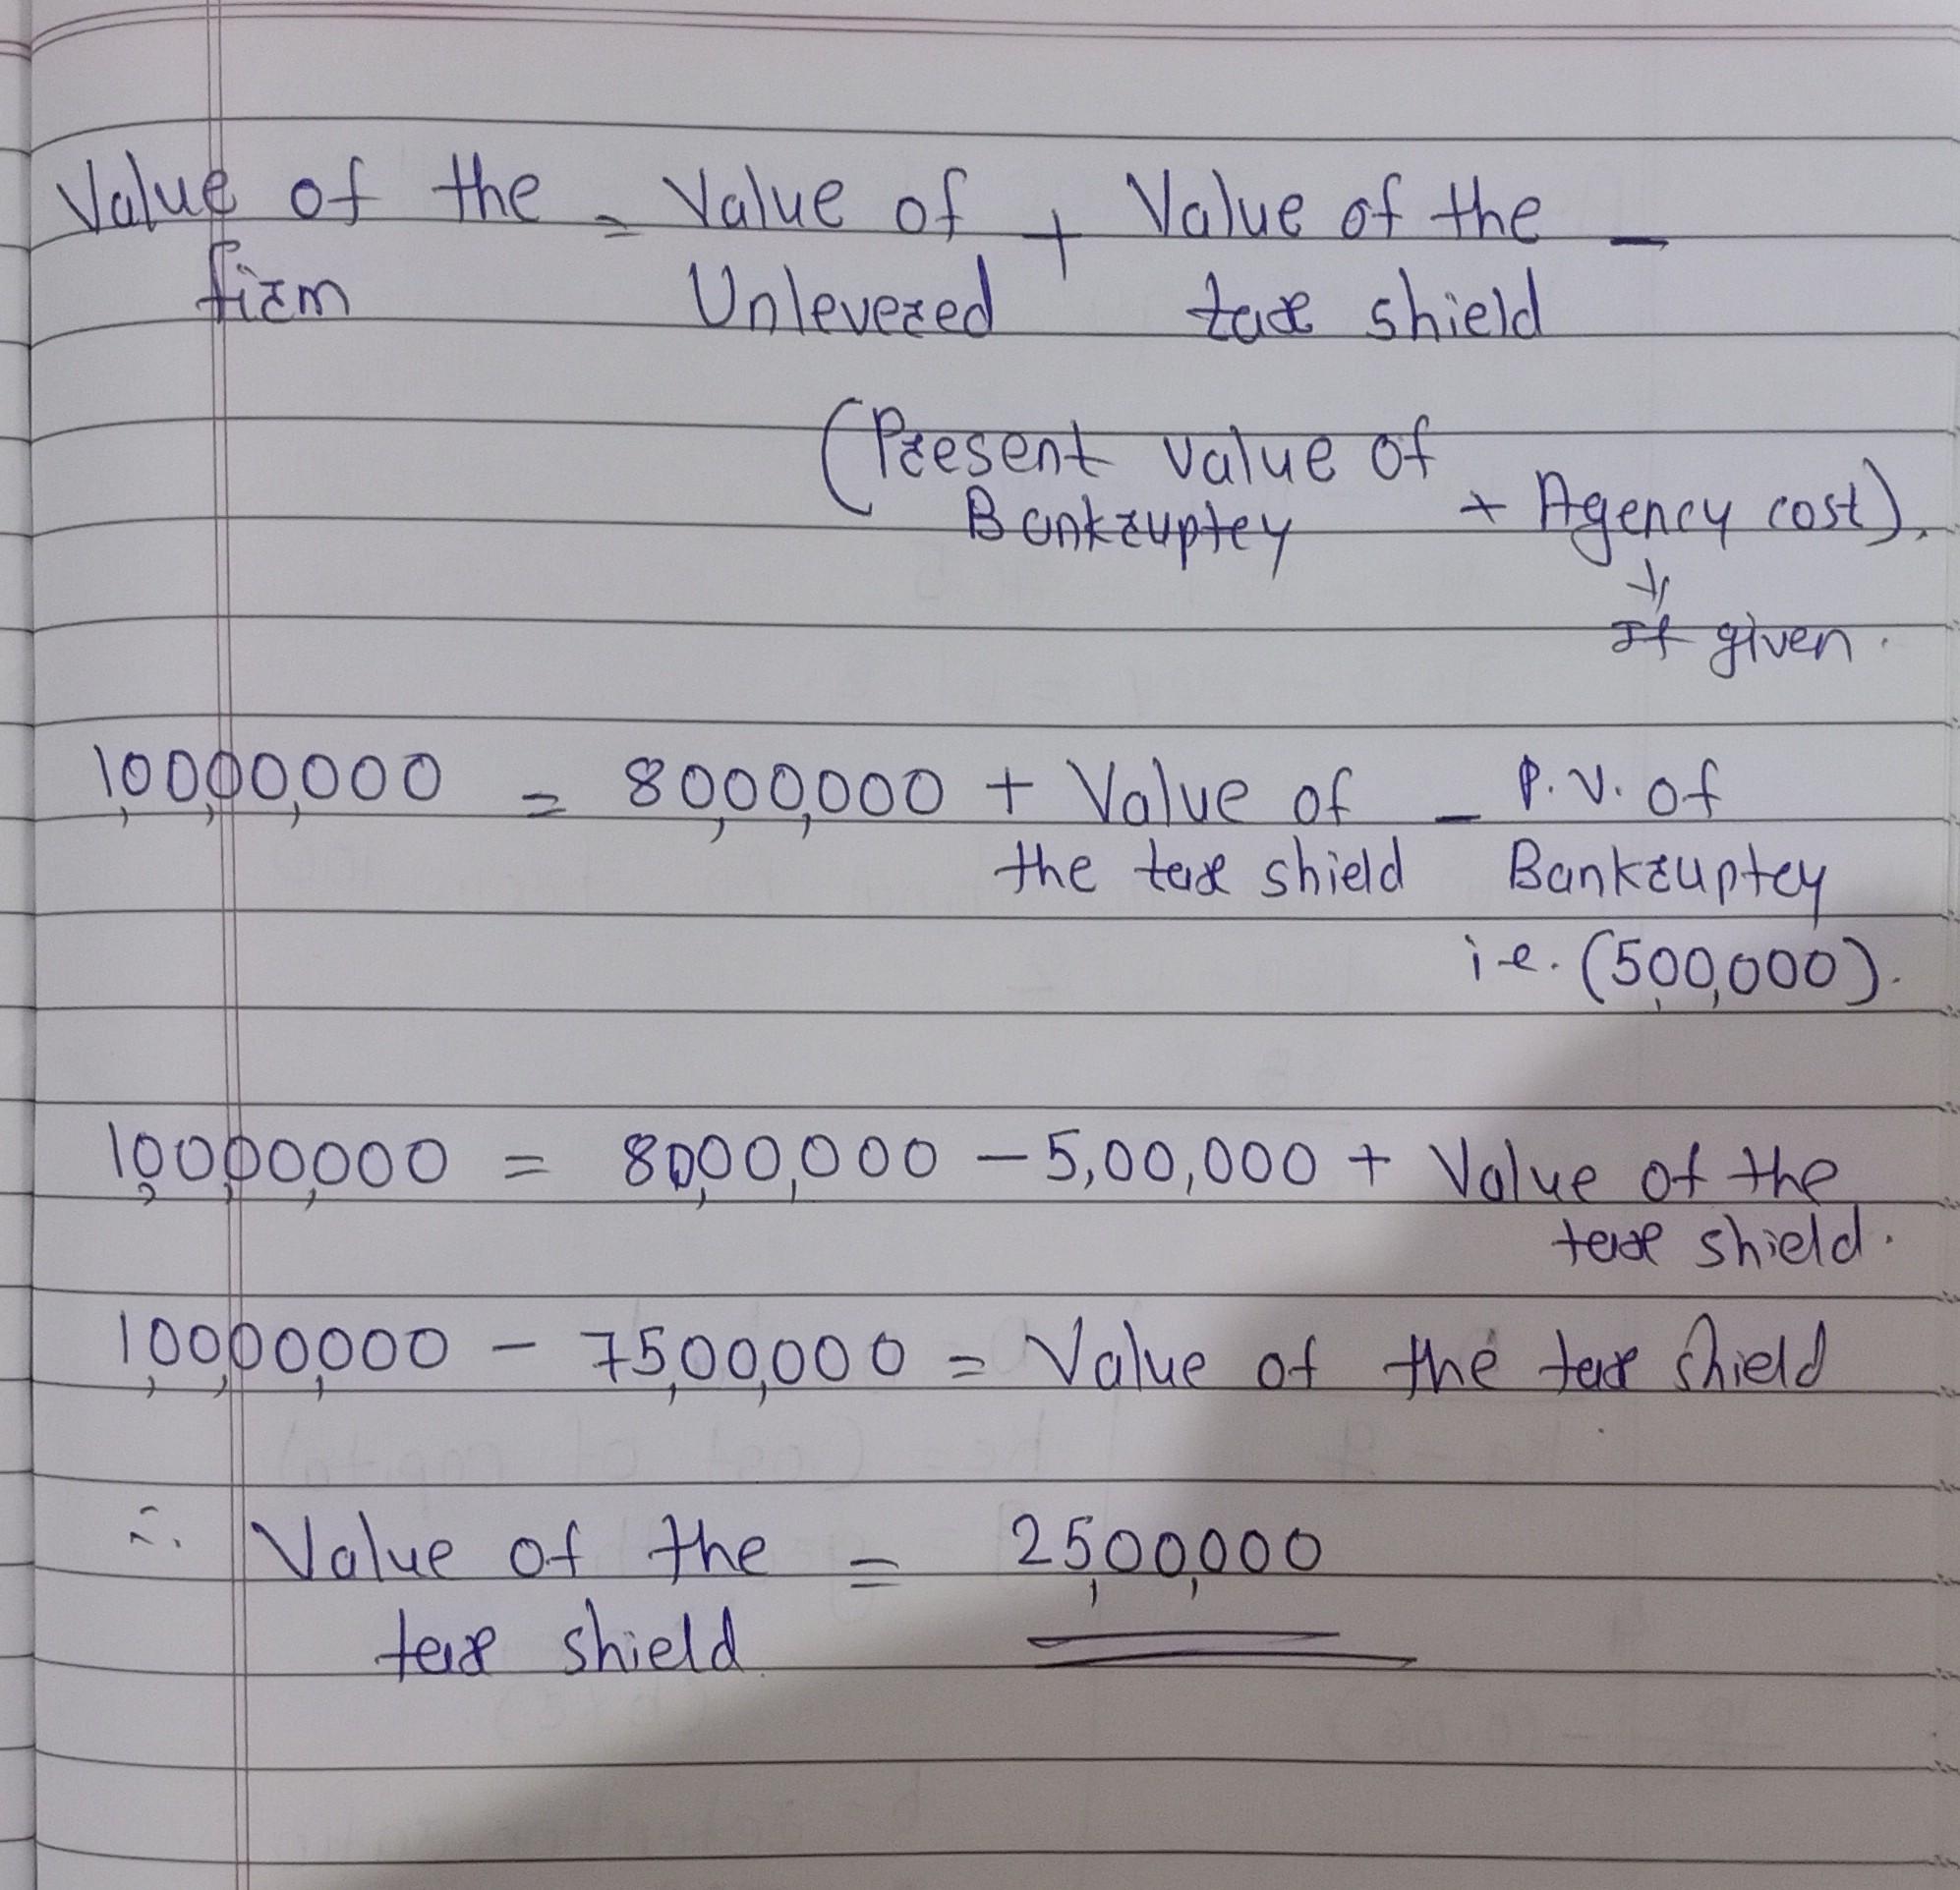 Value of the = Value of + Value of the –
firm Unlevered tax shield
(Present value of
Bankruptcy + Agency cost).
↓
If given.
1,00,00,000 = 80,00,000 + Value of – P.V. of
the tax shield Bankruptcy
i.e. (5,00,000).
1,00,00,000 = 80,00,000 – 5,00,000 + Value of the
tax shield.
1,00,00,000 – 75,00,000 = Value of the tax shield
∴ Value of the = 25,00,000
tax shield.